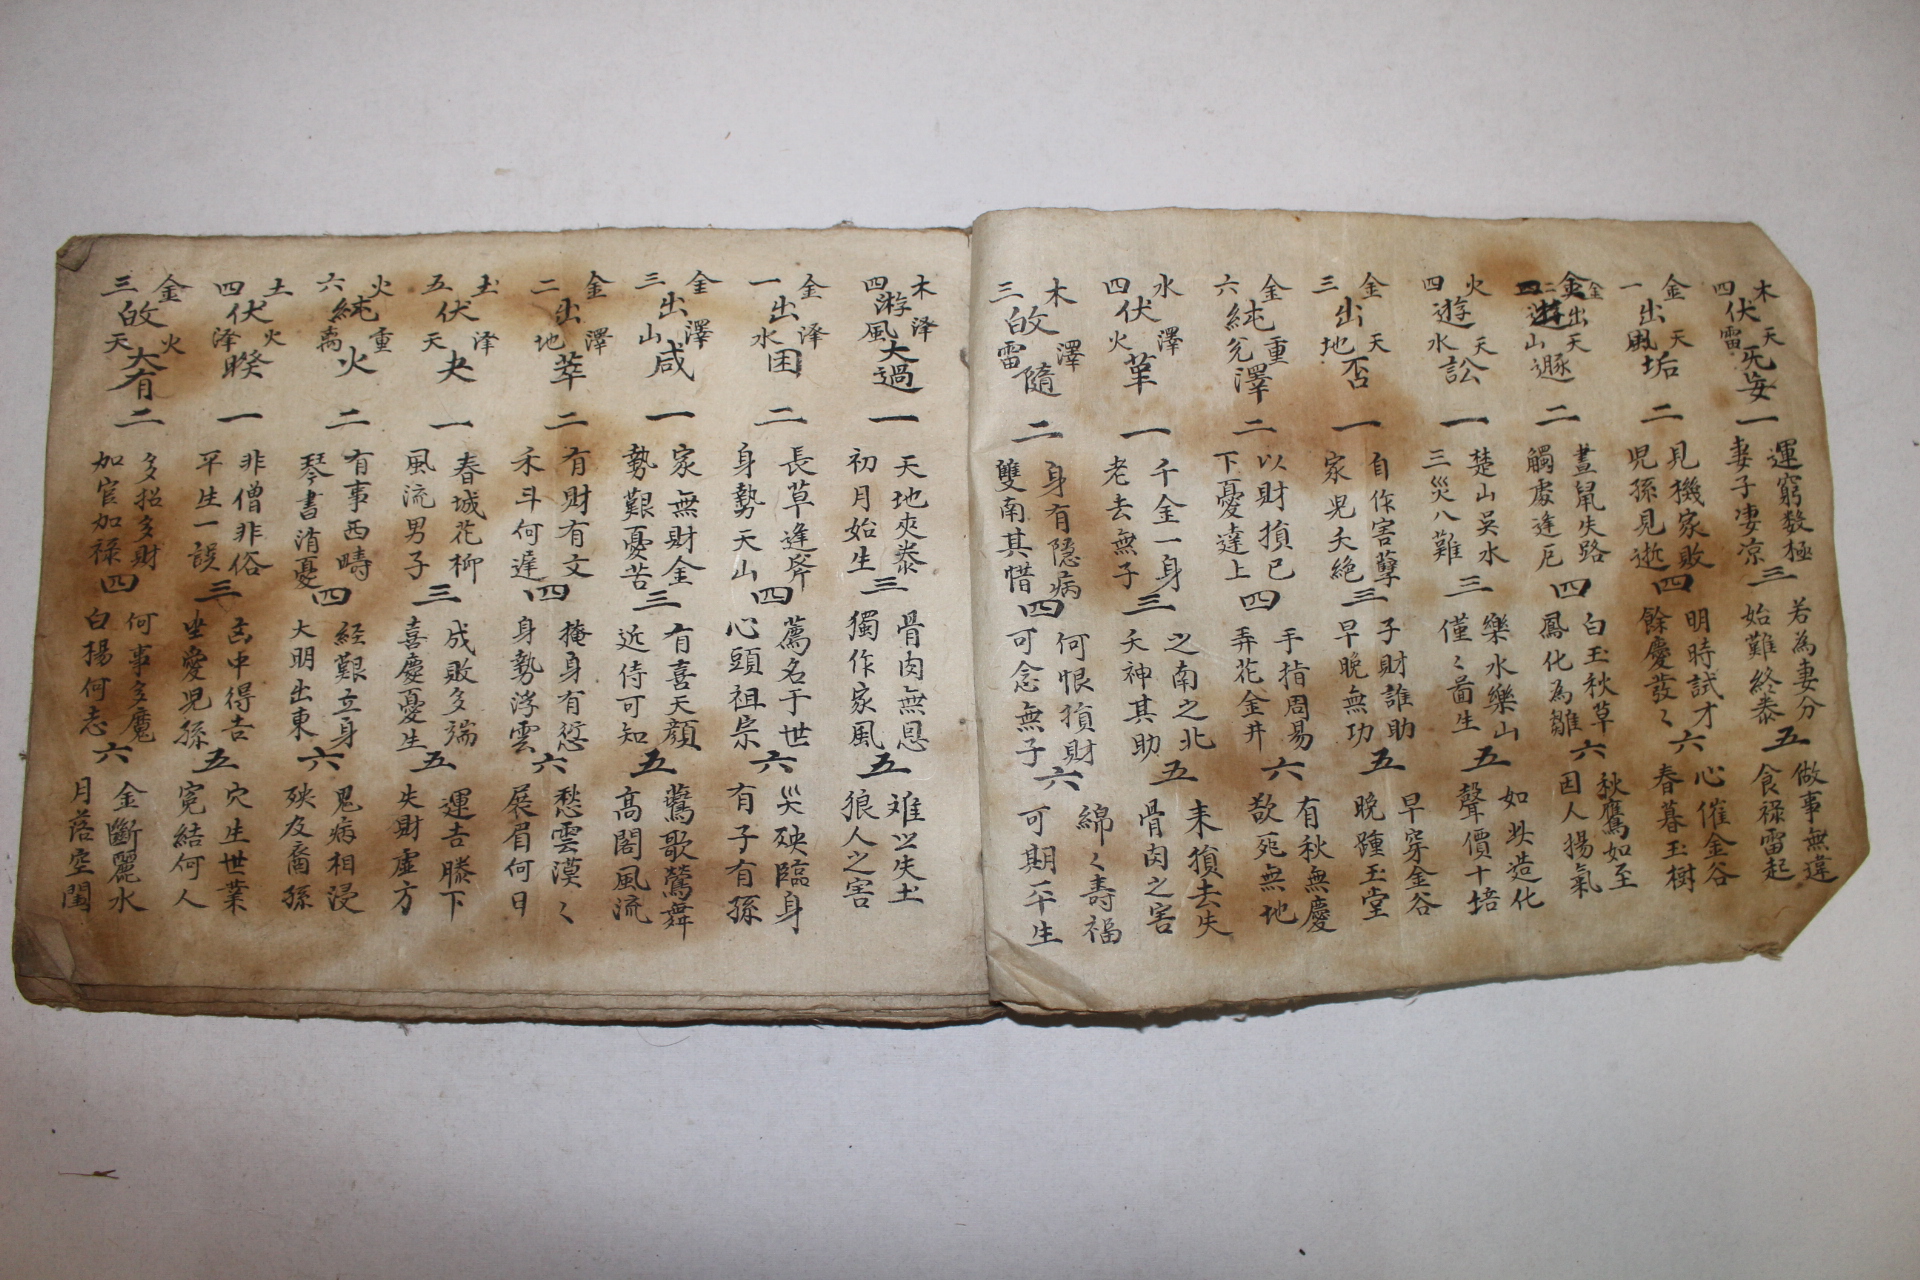 木 四 伏 天 雷 无妄
一
運窮數極
妻子凄凉
三
若為妻分
始難終泰
五
做事無違
食祿雷起
金 一 出 天 風 垢
二
見機家敗
児孫見逝
四
明時試才
餘慶發〻
六
心催金谷
春暮玉樹
金 二 出 天 山 遯
二
晝鼠失路
觸處逢厄
四
白玉秋草
鳳化為雛
六
秋鷹如至
因人揚氣
火 四 遊 天 水 訟
一
楚山吳水
三災八難
三
樂水樂山
僅〻苗生
五
如此造化
聲價十培
金 三 出 天 地 否
一
自作害孽
家兒夭絕
三
子財誰助
早晚無功
五
早穿金谷
晚踵玉堂
金 六 純 重 兌 澤
二
以財損已
下憂達上
四
手指周易
弄花金井
六
有秋無慶
欲死無地
水 四 伏 澤 火 革
一
千金一身
老去無子
三
之南之北
天神其助
五
未損去失
骨肉之害
木 三 攸 澤 雷 隨
二
身有隱病
雙南其惜
四
何恨損財
可念無子
六
綿〻壽福
可期平生
木 四 游 泽 風 大過
一
天地夾泰
初月始生
三
骨肉無恩
獨作家風
五
难以失土
狼人之害
金 一 出 泽 水 困
二
長草逢斧
身勢天山
四
薦名于世
心頭祖宗
六
災殃臨身
有子有孫
金 三 出 澤 山 咸
一
家無財金
勢艱憂苦
三
有喜天顔
近侍可知
五
鶯歌鶯舞
高閣風流
金 二 出 澤 地 萃
二
有財有文
禾斗何遅
四
掩身有愆
身勢浮雲
六
愁雲漠〻
展眉何日
土 五 伏 泽 天 夬
一
春城花柳
風流男子
三
成敗多端
喜慶憂生
五
運吉膝下
失財虛方
火 六 純 重 离 火
二
有事西疇
琴書消憂
四
経艱立身
大明出東
六
鬼病相浸
殃及裔孫
土 四 伏 火 泽 睽
一
非僧非俗
平生一誤
三
凶中得吉
坐愛児孫
五
穴生世業
寃結何人
金 三 攸 火 天 大有
二
多招多財
加官加祿
四
何事多魔
白楊何志
六
金斷麗水
月落空閨